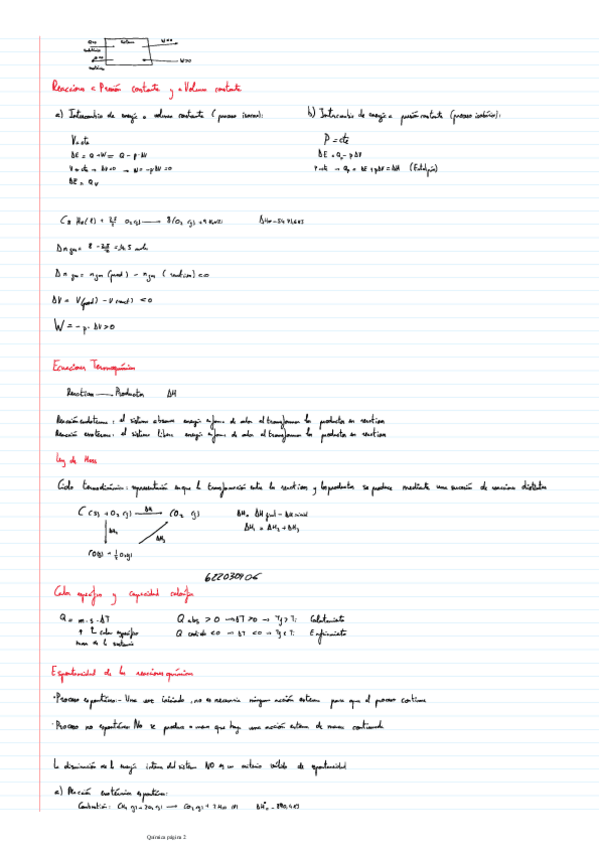 Q>0 Sistema W<0
W>0
Reacciones a Presión constante y a Volumen constante
a) Intercambio de energía a volumen constante (proceso isocoro):
b) Intercambio de energía a presión constante (proceso isobárico):
V=cte
P=cte
ΔE = Q+W = Q - p·ΔV
ΔE = Qp - pΔV
V=cte → ΔV=0 → W=-pΔV=0
P=cte → Qp = ΔE+pΔV=ΔH (Entalpía)
ΔE = Qv
ΔV = V(prod) - V(react) <0
W = -p·ΔV>0
Ecuaciones Termoquímicas
Reactivos → Productos ΔH
Reacción endotérmica: el sistema absorbe energía en forma de calor al transformar los productos en reactivos
Reacción exotérmica: el sistema libera energía en forma de calor al transformar los productos en reactivos
Ley de Hess
Ciclo termodinámico: representación en que la transformación entre los reactivos y los productos se produce mediante una sucesión de reacciones distintas
C (s) + O₂ (g) → CO₂ (g)
ΔH₁ = ΔH₂ + ΔH₃
CO(g) + ½ O₂(g)
622030906
Calor específico y capacidad calorífica
Q = m·s·ΔT Q abs > 0 → ΔT > 0 → Tf > Ti Calentamiento
calor específico Q cedido < 0 → ΔT < 0 → Tf < Ti Enfriamiento
masa de la sustancia
Espontaneidad de las reacciones químicas
·Proceso espontáneo:- Una vez iniciado, no es necesaria ninguna acción externa para que el proceso continúe
·Proceso no espontáneo: No se produce a menos que haya una acción externa de manera continuada
La disminución de la energía interna del sistema NO es un criterio válido de espontaneidad
a) Reacción exotérmica espontánea:
Combustión: CH₄ (g) + 2O₂ (g) → CO₂ (g) + 2H₂O (l) ΔH° = -890,4 KJ
Química página 2